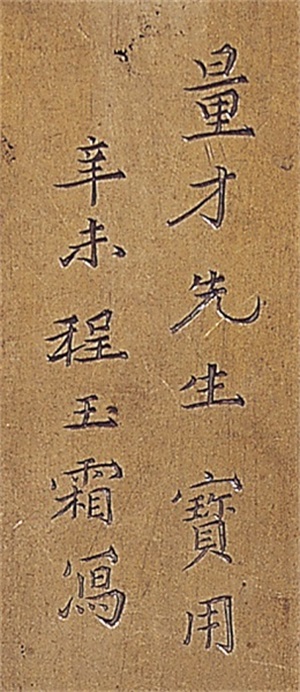 量才先生寳用
辛未程玉霜寫